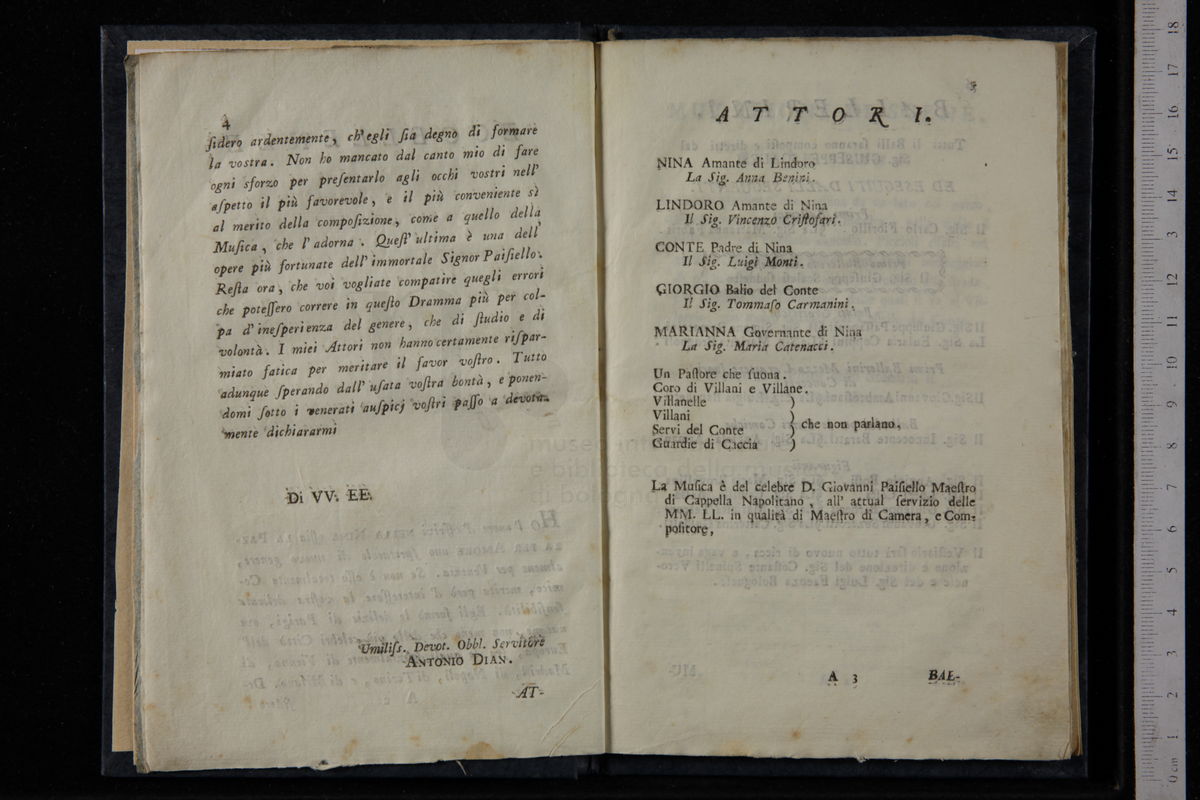 4
ſidero ardentemente, ch'egli ſia degno di formare
la vostra. Non ho mancato dal canto mio di fare
ogni sforzo per preſentarlo agli occhi vostri nell'
aſpetto il più favorevole, e il più conveniente sì
al merito della compoſizione, come a quello della
Muſica, che l'adorna. Queſt' ultima è una dell'
opere più fortunate dell' immortale Signor Paiſiello.
Reſta ora, che voi vogliate compatire quegli errori
che poteſſero correre in queſto Dramma più per col-
pa d'ineſperienza del genere, che di ſtudio e di
volontà. I miei Attori non hanno certamente riſpar-
miato fatica per meritare il favor voſtro. Tutto
adunque ſperando dall' uſata voſtra bontà, e ponen-
domi ſotto i venerati auſpicj voſtri paſſo a devota-
mente dichiararmi
Di VV. EE.
Umiliſs. Devot. Obbl. Servitore
ANTONIO DIAN.
AT-
5
ATTORI.
NINA Amante di Lindoro
La Sig. Anna Benini.
LINDORO Amante di Nina
Il Sig. Vincenzo Criſtofari.
CONTE Padre di Nina
Il Sig. Luigi Monti.
GIORGIO Balio del Conte
Il Sig. Tommaſo Carmanini.
MARIANNA Governante di Nina
La Sig. Maria Catenacci.
Un Paſtore che ſuona.
Coro di Villani e Villane.
Villanelle )
Villani )
Servi del Conte ) che non parlano.
Guardie di Caccia )
La Muſica è del celebre D. Giovanni Paiſiello Maeſtro
di Cappella Napolitano, all' attual ſervizio delle
MM. LL. in qualità di Maeſtro di Camera, e Com-
poſitore,
A 3
BAL-